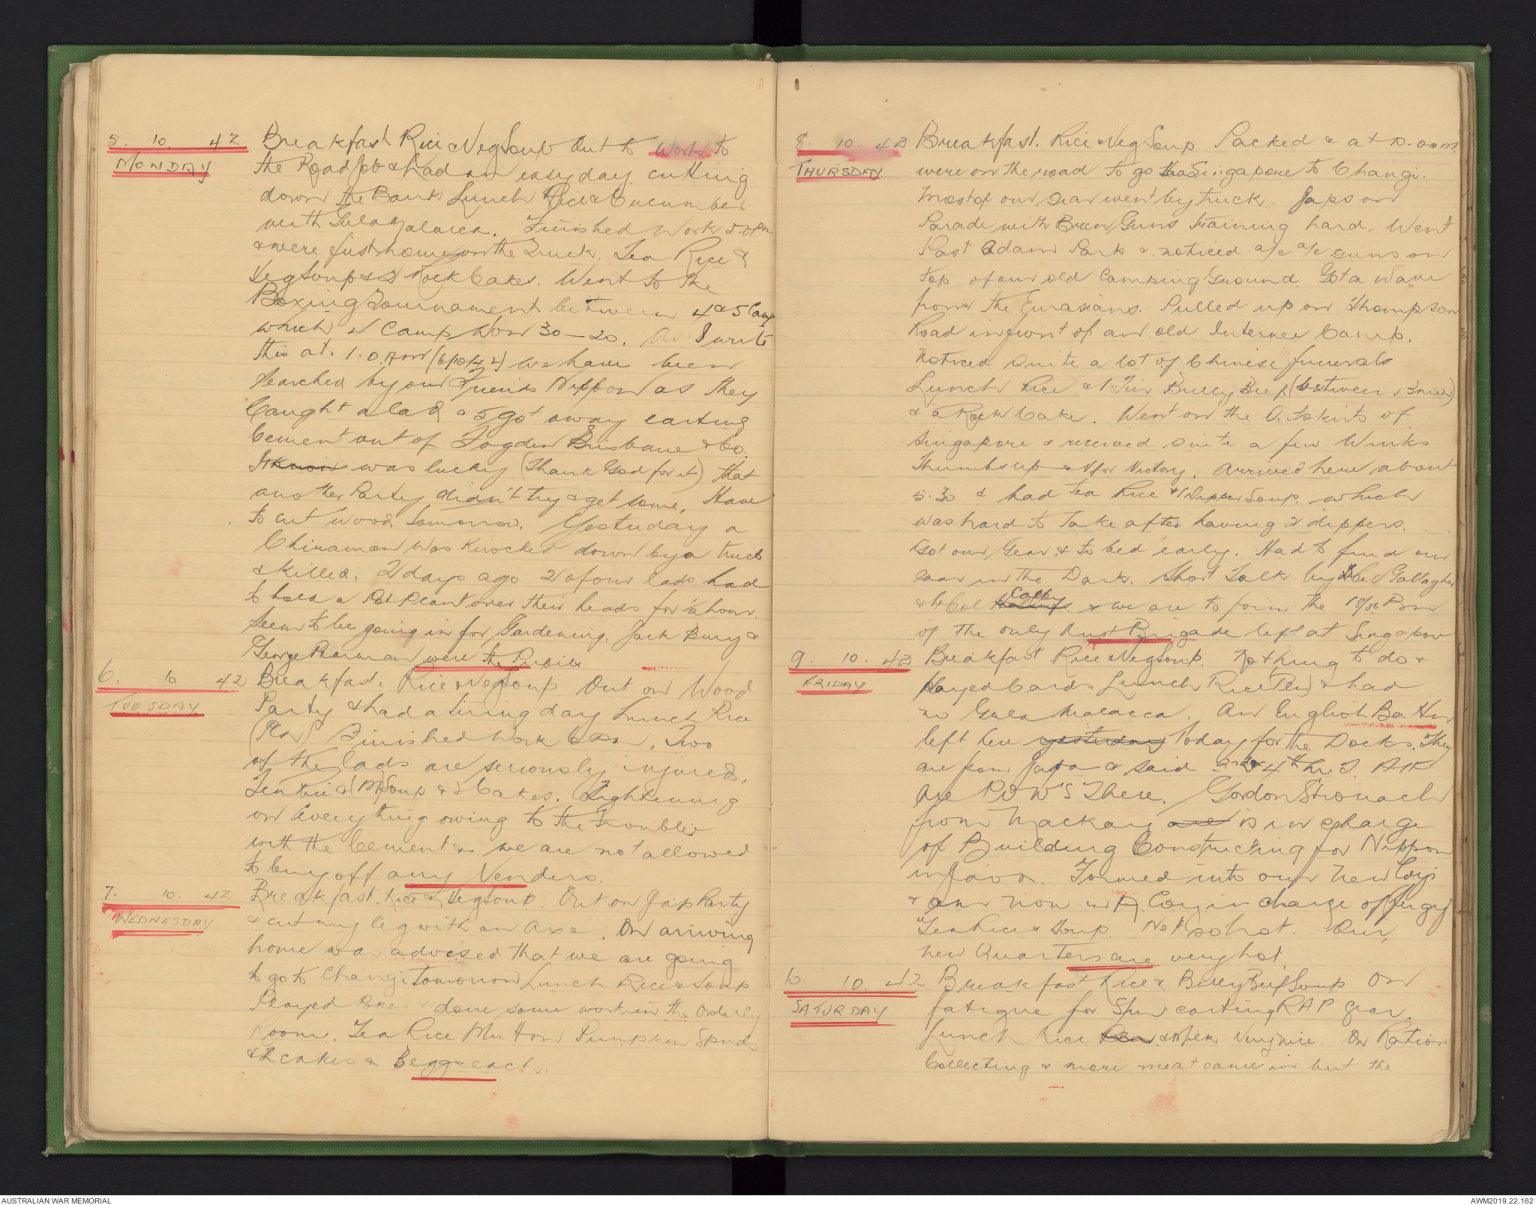 5. 10. 42 Breakfast Rice & Veg Soup Out to Work to
MONDAY the Road Job & had an easy day cutting
down the Bank Lunch Rice & Cucumber
with Gula Malacca. Finished Work 5.0 PM
& were just home on the Truck. Tea Rice &
Veg Soup & 2 Rock Cakes. Went to the
Boxing Tournament between 4 & 5 Camp
which 4 Camp Won 30–20. As I write
this at 1.0 Am (6/10/42) we have been
searched by our Friends Nippon as they
Caught a lad & 5 got away carting
Cement out of Fogden Brisbane & Co.
It was lucky (Thank God for it) that
another Party didn't try & get some. Have
to cut wood tomorrow. Yesterday a
Chinaman was knocked down by a truck
& killed. 2 days ago 2 of our lads had
to hold a Pot Plant over their heads for ½ hour
Seem to be going in for Gardening. Jack Bury &
George Pearman were the
6. 10 42 Breakfast. Rice & Veg Soup Out on Wood
TUESDAY Party & had a tiring day Lunch Rice
(Plain) Finished work 6 Pm. Two
of the lads are seriously injured.
Tea Rice & Soup & 2 Cakes. Tightening
on everything owing to the Troubles
with the Cement & we are not allowed
to buy off any Venders.
7. 10. 42 Breakfast. Rice & Veg Soup. Out on Jap Party
WEDNESDAY & cut my leg with an axe. On arriving
home was advised that we are going
to go to Changi tomorrow Lunch Rice & Soup
Played & done some work in the Orderly
Room. Tea Rice Mutton Pumpkin Spuds
& 2 cakes & egg each.
8. 10. 42 Breakfast. Rice & Veg Soup Packed & at 10.00 am
THURSDAY were on the road to go thro Singapore to Changi.
Most of our Gear went by truck. Japs on
Parade with Bren Guns training hard. Went
Past Adam Park & noticed a/c a/c guns on
top of our old Camping Ground Got a wave
from the Eurasians. Pulled up on Thompson
Road in front of an old Internee Camp.
Noticed quite a lot of Chinese funerals
Lunch Rice & 1 Tin Bully Beef (between 3 men)
& a Rock Cake. Went on the Outskirts of
Singapore & received quite a few Winks
Thumbs up & V for Victory. Arrived here about
5.30 & had tea Rice & 1 Dipper Soup which
was hard to take after having 2 dippers.
Got our Gear & to bed early. Had to find our
Gear in the Dark. Short Talk by Gallagher
& Lt Col & we are to form the
of the only Aust Brigade left at Singapore
9. 10. 42 Breakfast Rice & Veg Soup. Nothing to do &
FRIDAY Played Cards Lunch Rice (Plain) & had
no Gula Malacca. An English Battn
left here yesterday Today for the Docks. They
are from Java & said 2nd & 4th AIF
are P.O.W's There. Gordon Stronach
from Mackay are is in charge
of Building Constructing for Nippon
in Java. Formed into our new Coys
& am now in Coy in charge of
Tea Rice & Soup. Not so hot. Our
new Quarters are very hot
10. 10. 42 Breakfast Rice & Bully Beef Soup On
SATURDAY fatigue for carting RAP Gear.
Lunch Rice & Open On Ration
Collecting & more meat came in but the
AUSTRALIAN WAR MEMORIAL
AWM2019.22.162